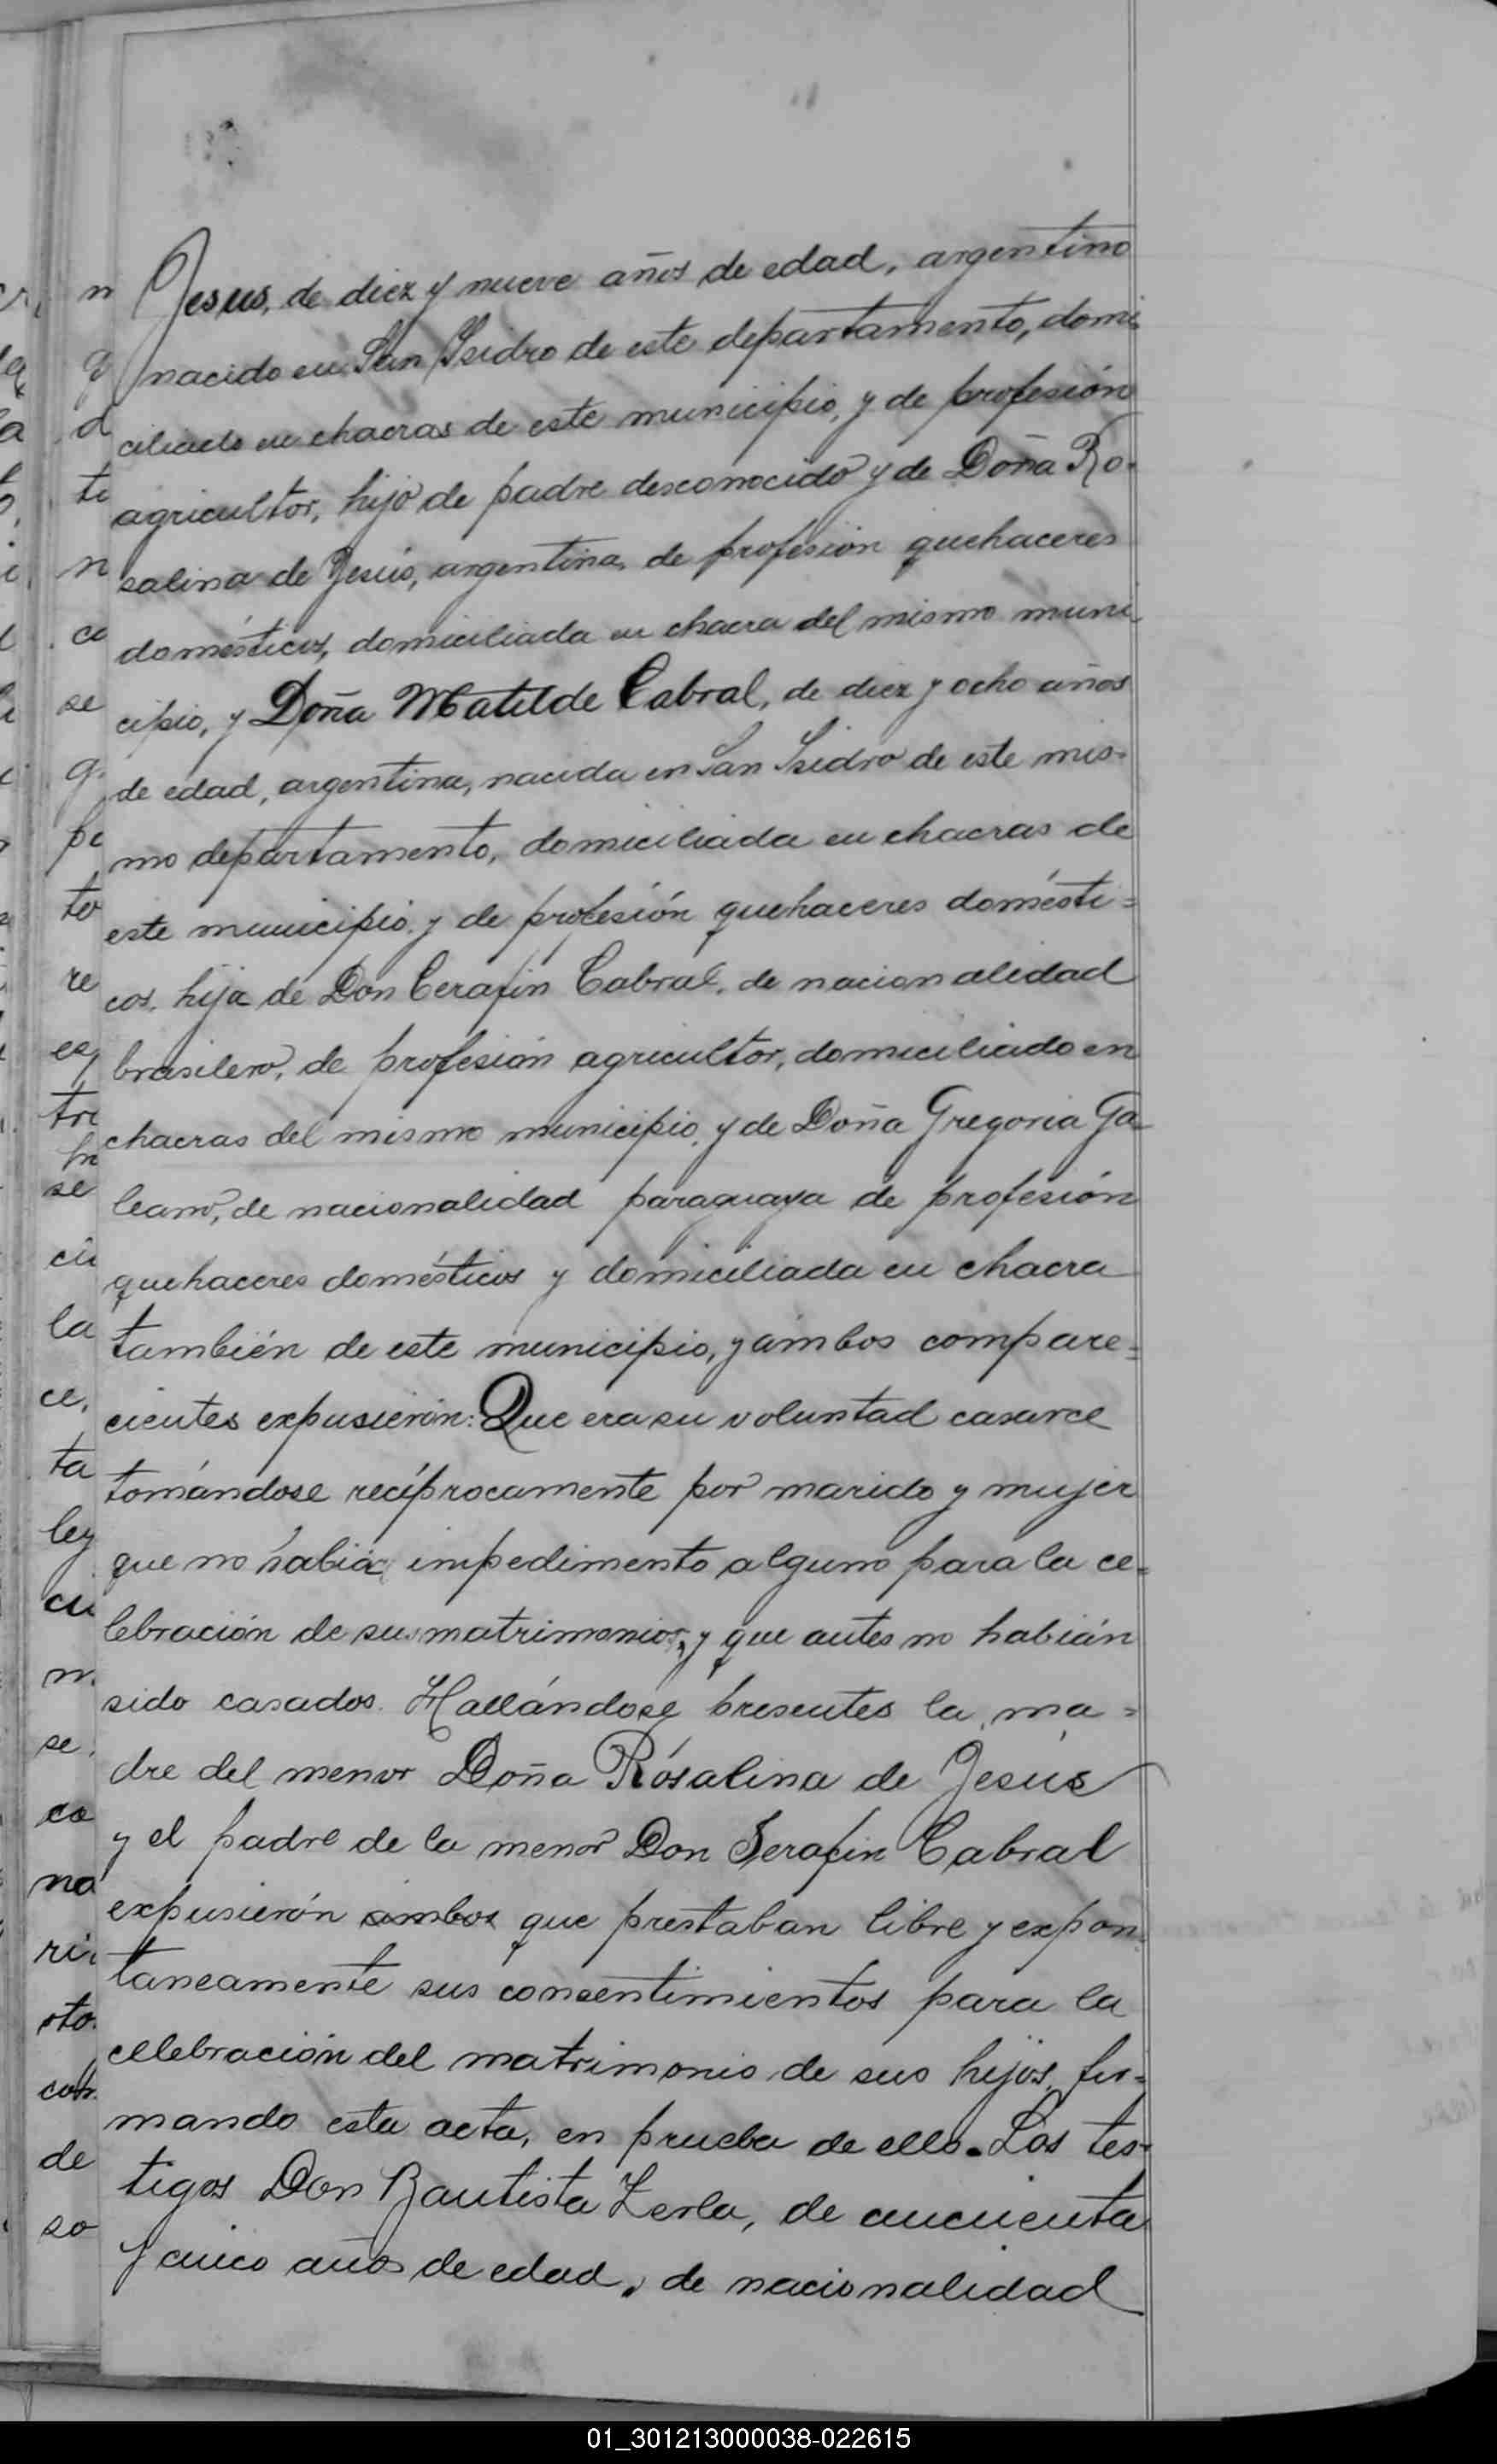 Jesus, de diez y nueve años de edad, argentino
nacido en San Isidro de este departamento, domi
ciliado en chacras de este municipio, y de profesión
agricultor, hijo de padre desconocido y de Doña Ro-
salina de Jesús, argentina, de profesión quehaceres
domésticos, domiciliada en chacra del mismo muni
cipio, y Doña Matilde Cabral, de diez y ocho años
de edad, argentina, nacida en San Isidro de este mis-
mo departamento, domiciliada en chacras de
este municipio y de profesión quehaceres domésti=
cos, hija de Don Cerafin Cabral, de nacionalidad
brasilero, de profesión agricultor, domiciliado en
chacras del mismo municipio, y de Doña Gregoria Ga-
leano, de nacionalidad paraguaya de profesión
quehaceres domésticos y domiciliada en chacra
también de este municipio, y ambos compare=
cientes expusierón: Que era su voluntad casarce
tomándose recíprocamente por marido y mujer
que no habia impedimento alguno para la ce=
lebración de su matrimonio, y que antes no habián
sido casados. Hallándose presentes la ma=
dre del menor Doña Rosalina de Jesús
y el padre de la menor Don Serafin Cabral
expusierón ambos que prestaban libre y expon
taneamente sus consentimientos para la
celebración del matrimonio de sus hijos, fir=
mando esta acta, en prueba de ello. Los tes-
tigos Don Bautista Zerla, de cincuenta
y cinco años de edad, de nacionalidad
01_301213000038-022615